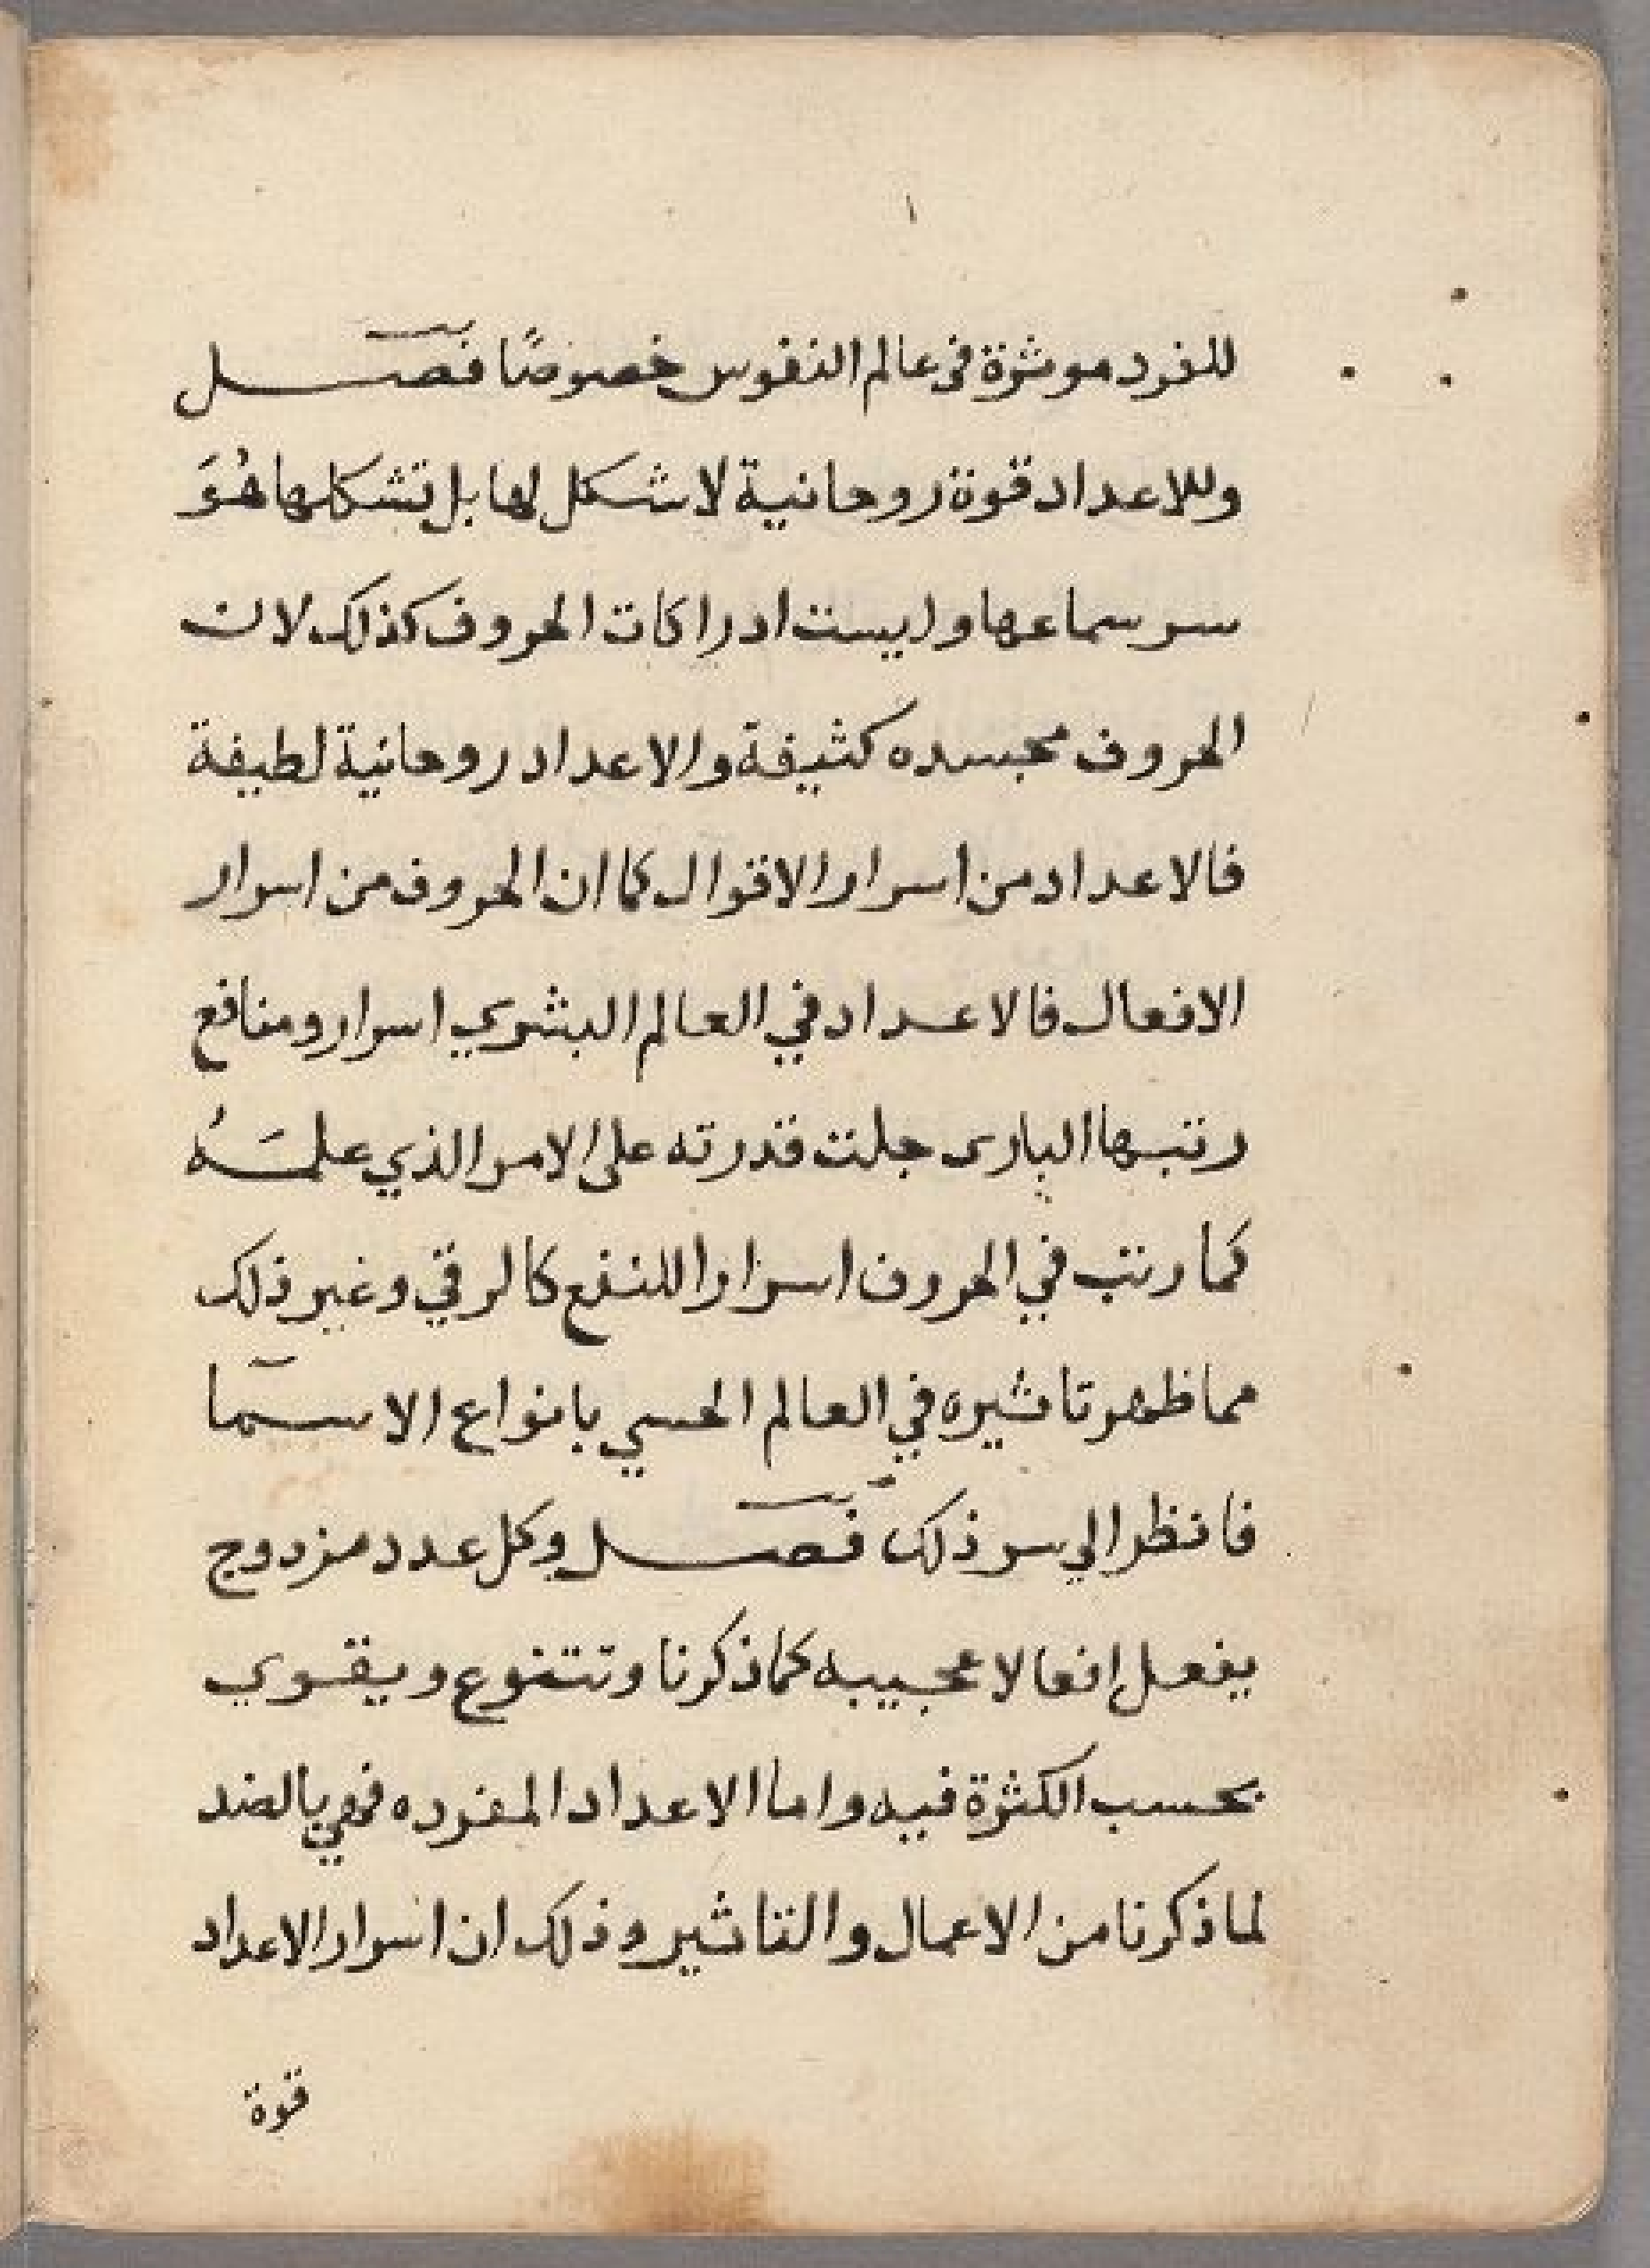 للفرد موثرة فى عالم النفوس خصوصًا فصل
وللاعداد قوة روحانية لا شكل لها بل تشكلها هُوَ
سر سماعها وليست ادراكات الحروف كذلك لان
الحروف مجسده كثيفة والاعداد روحانية لطيفة
فالاعداد من اسرار الاقوال كما ان الحروف من اسرار
الافعال فالاعداد في العالم البشري اسرار ومنافع
رتبها البارى جلت قدرته على الامر الذي علمَهُ
كما رتب في الحروف اسرارا للنفع كالرقي وغير ذلك
مما ظهر تاثيره في العالم الحسي بانواع الاسمآ
فانظر الي سر ذلك فصل وكل عدد مزدوج
يفعل افعالا عجيبه كما ذكرنا وتتنوع ويقوي
بحسب الكثرة فيه واما الاعداد المفرده فهي بالضد
لما ذكرنا من الاعمال والتاثير وذلك ان اسرار الاعداد
قوة